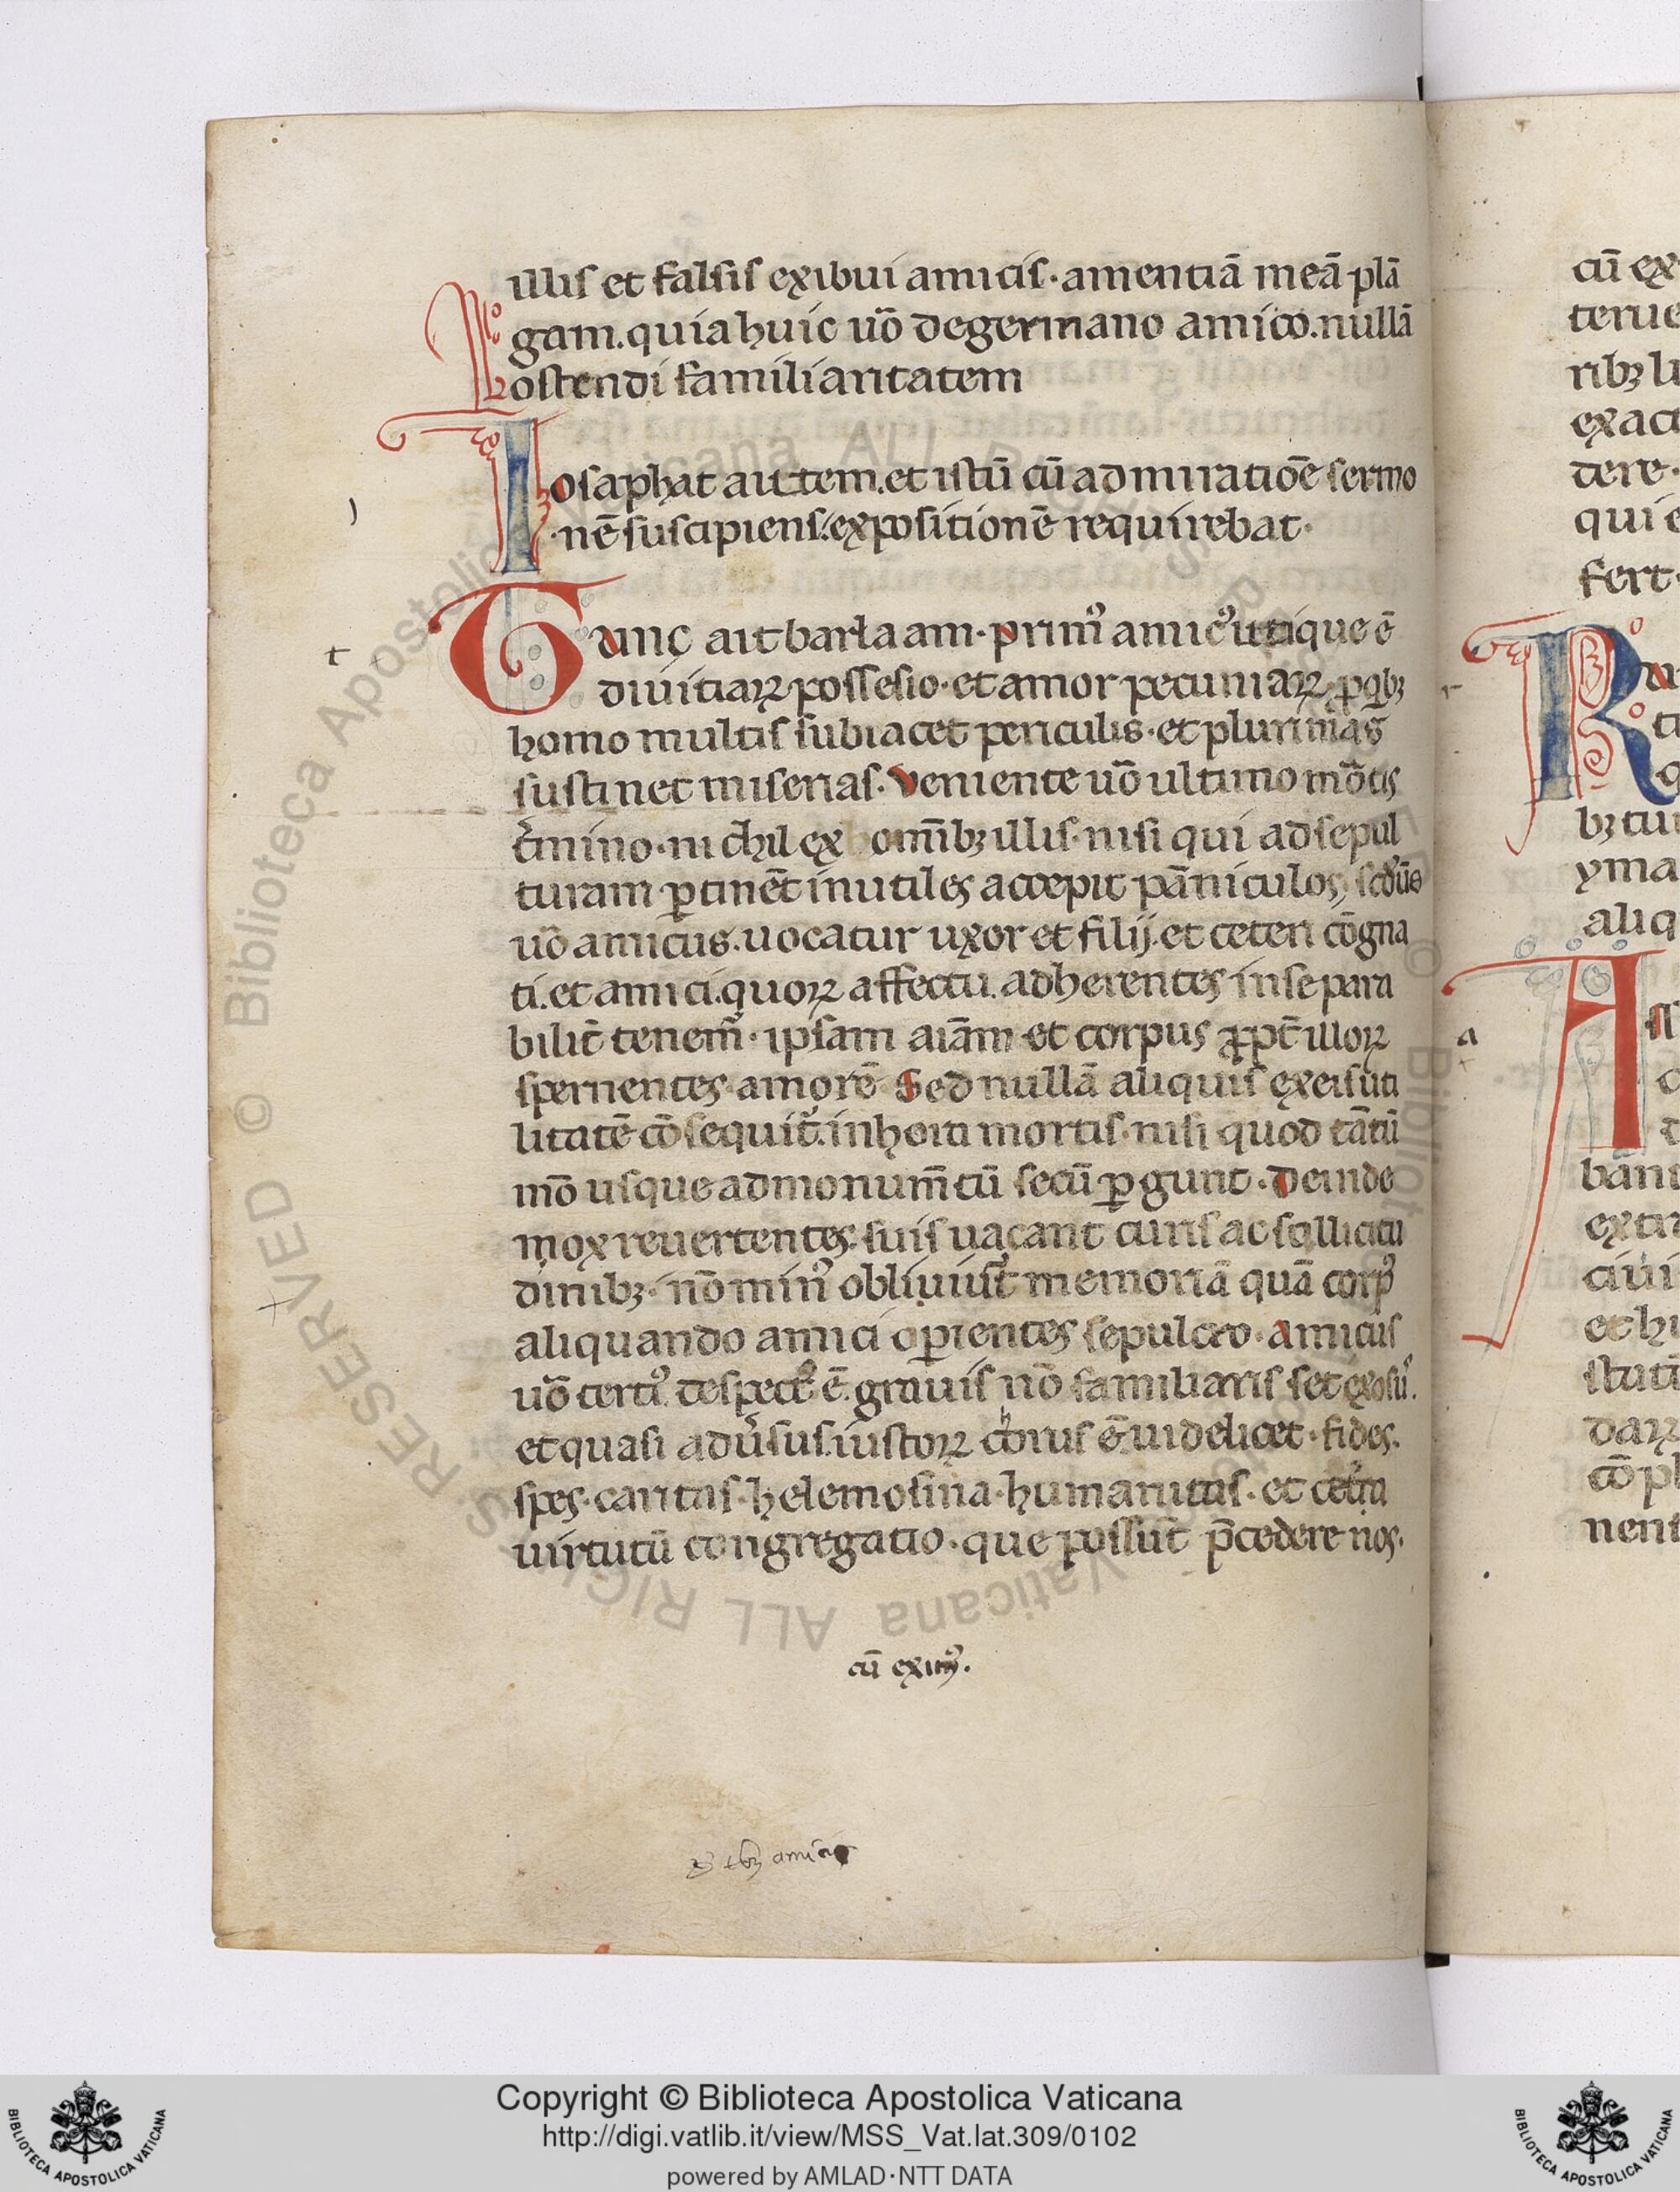 illis et falsis exibui amicis · amentiā meā plā
gam. quia huic uõ degermano amico. nullā
ostendi familiaritatem
Iosaphat autem. et istū cū admiratiōe sermo
nē suscipiens. expositionē requirebat ·
Tunc ait barlaam · primꝰ amicꝰ utique ē
diuitiaꝝ possesio · et amor pecuniaꝝ ꝓ qͥbꝫ
homo multis subiacet periculis · et plurimas
sustinet miserias. Veniente uõ ultimo mōtis
t̄mino · nichil ex omībꝫ illis · nisi qui ad sepul
turam ꝑtinēt inutiles accepit pāniculos,
uõ amicus. uocatur uxor et filij. et ceteri cōgna
ti. et amici. quoꝝ affectu. adherentes insepara
bilit̄ tenem̃ · ipsam aiām et corpus ꝓpt̄ illoꝝ
spernentes amorē Sed nullā aliquis ex eis uti
litatē cōsequit̃. in hora mortis · nisi quod tātū
mō usque ad monum̄tū secū ꝑgunt. Deinde
mox reuertentes. suis uacant curis ac sollicitu
dinibꝫ · nō minꝰ obliuiūt memoriā quā corpꝰ
aliquando amici opientes sepulcro · Amicus
uõ tertiꝰ despectꝰ ē. grauis nō familiaris set exosuˢ.
et quasi adūsus. iustoꝝ chorus ē uidelicet · fides.
spes · caritas · helemosina · humanitas · et cetͣa
uirtutū congregatio · que possūt p̄cedere nos ·
cū eximꝰ.
amicis
cū ex
terue
ribꝫ li
exact
dere ·
qui e
fert ·
bꝫ cu
yma
aliq
ban
extr
ciui
et hu
daꝝ
cō pl
nent
Copyright © Biblioteca Apostolica Vaticana
http://digi.vatlib.it/view/MSS_Vat.lat.309/0102
powered by AMLAD·NTT DATA
BIBLIOTECA APOSTOLICA VATICANA
BIBLIOTECA APOSTOLICA VATICANA